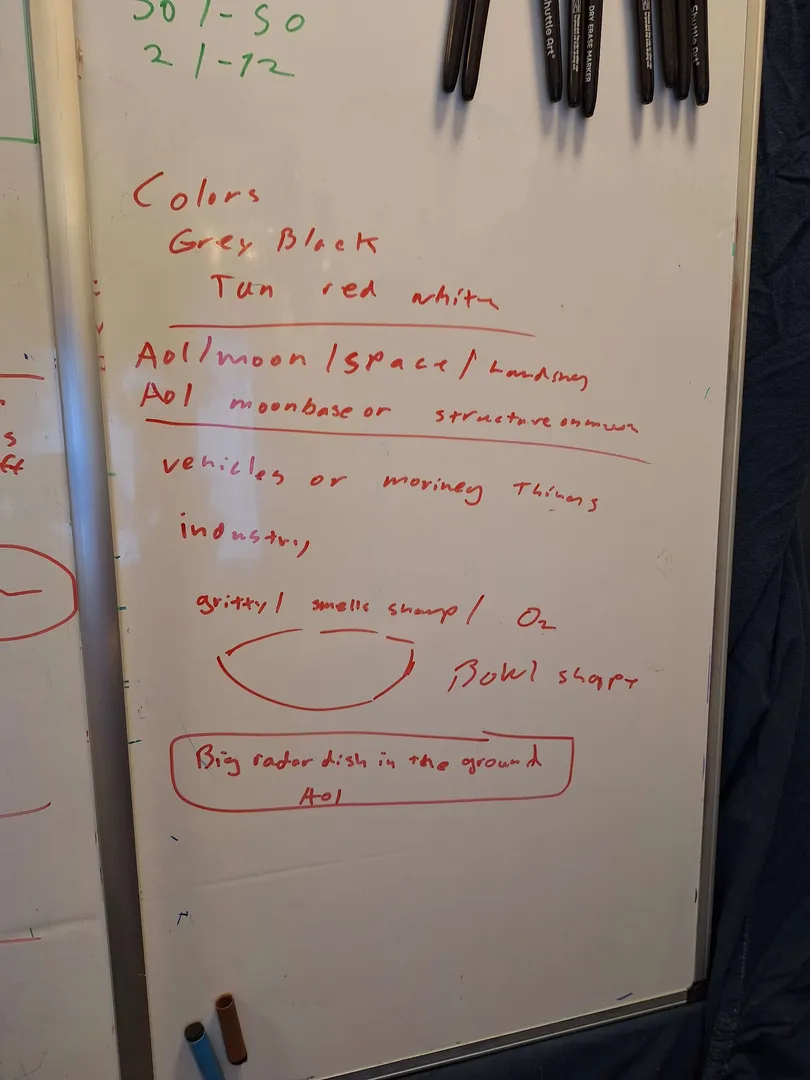 50 / - 50
2 / - 12
Shuttle Art
DRY ERASE MARKER
Shuttle Art
Colors
Grey Black
Tan red white
Aol/moon/space/Landing
Aol moonbase or structure on moon
vehicles or moving Things
industry
gritty/ smells sharp/ O2
Bowl shape
Big radar dish in the ground
Aol